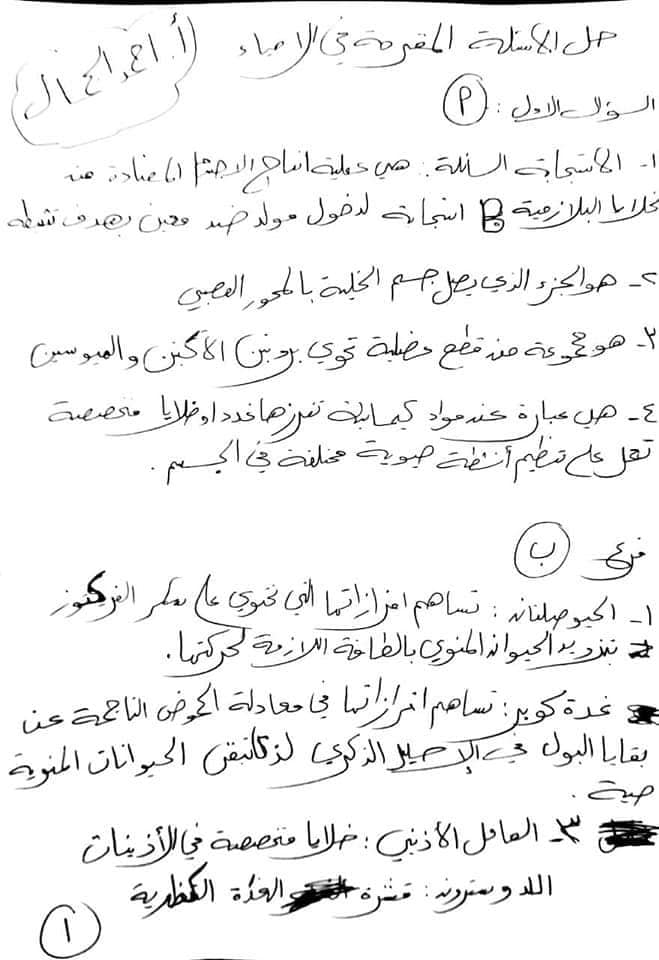 حل الأسئلة المقترحة في الاحياء
أ. احمد الحمال
السؤال الاول : P
١- الاستجابة السائلة : هي عملية انتاج الاجسام المضادة من
خلايا البلازمية B استجابة لدخول مولد ضد معين بهدف تثبيطه
٢- هو الجزء الذي يصل جسم الخلية بالمحور العصبي
٣- هو مجموعة من قطع عضلية تحوي بروتين الأكتين والميوسين
٤- هي عبارة عن مواد كيميائية تفرزها غدد او خلايا متخصصة
تعمل على تنظيم أنشطة حيوية مختلفة في الجسم .
فرع ب
١- الحوصلتان : تساهم افرازاتها التي تحتوي على سكر الفركتوز
بتزويد الحيوان المنوي بالطاقة اللازمة لحركتها .
غدة كوبر : تساهم افرازاتها في معادلة الحموض الناتجة عن
بقايا البول في الإحليل الذكري لذلك تبقى الحيوانات المنوية
حية .
٣- العامل الأذيني : خلايا متخصصة في الأذينات
الدوستيرون : قشرة الغدة الكظرية
١